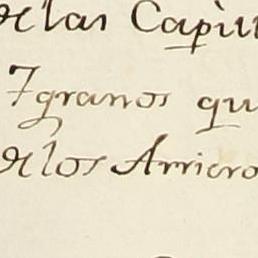 de las Capit
7 granos qu
de los Arriero